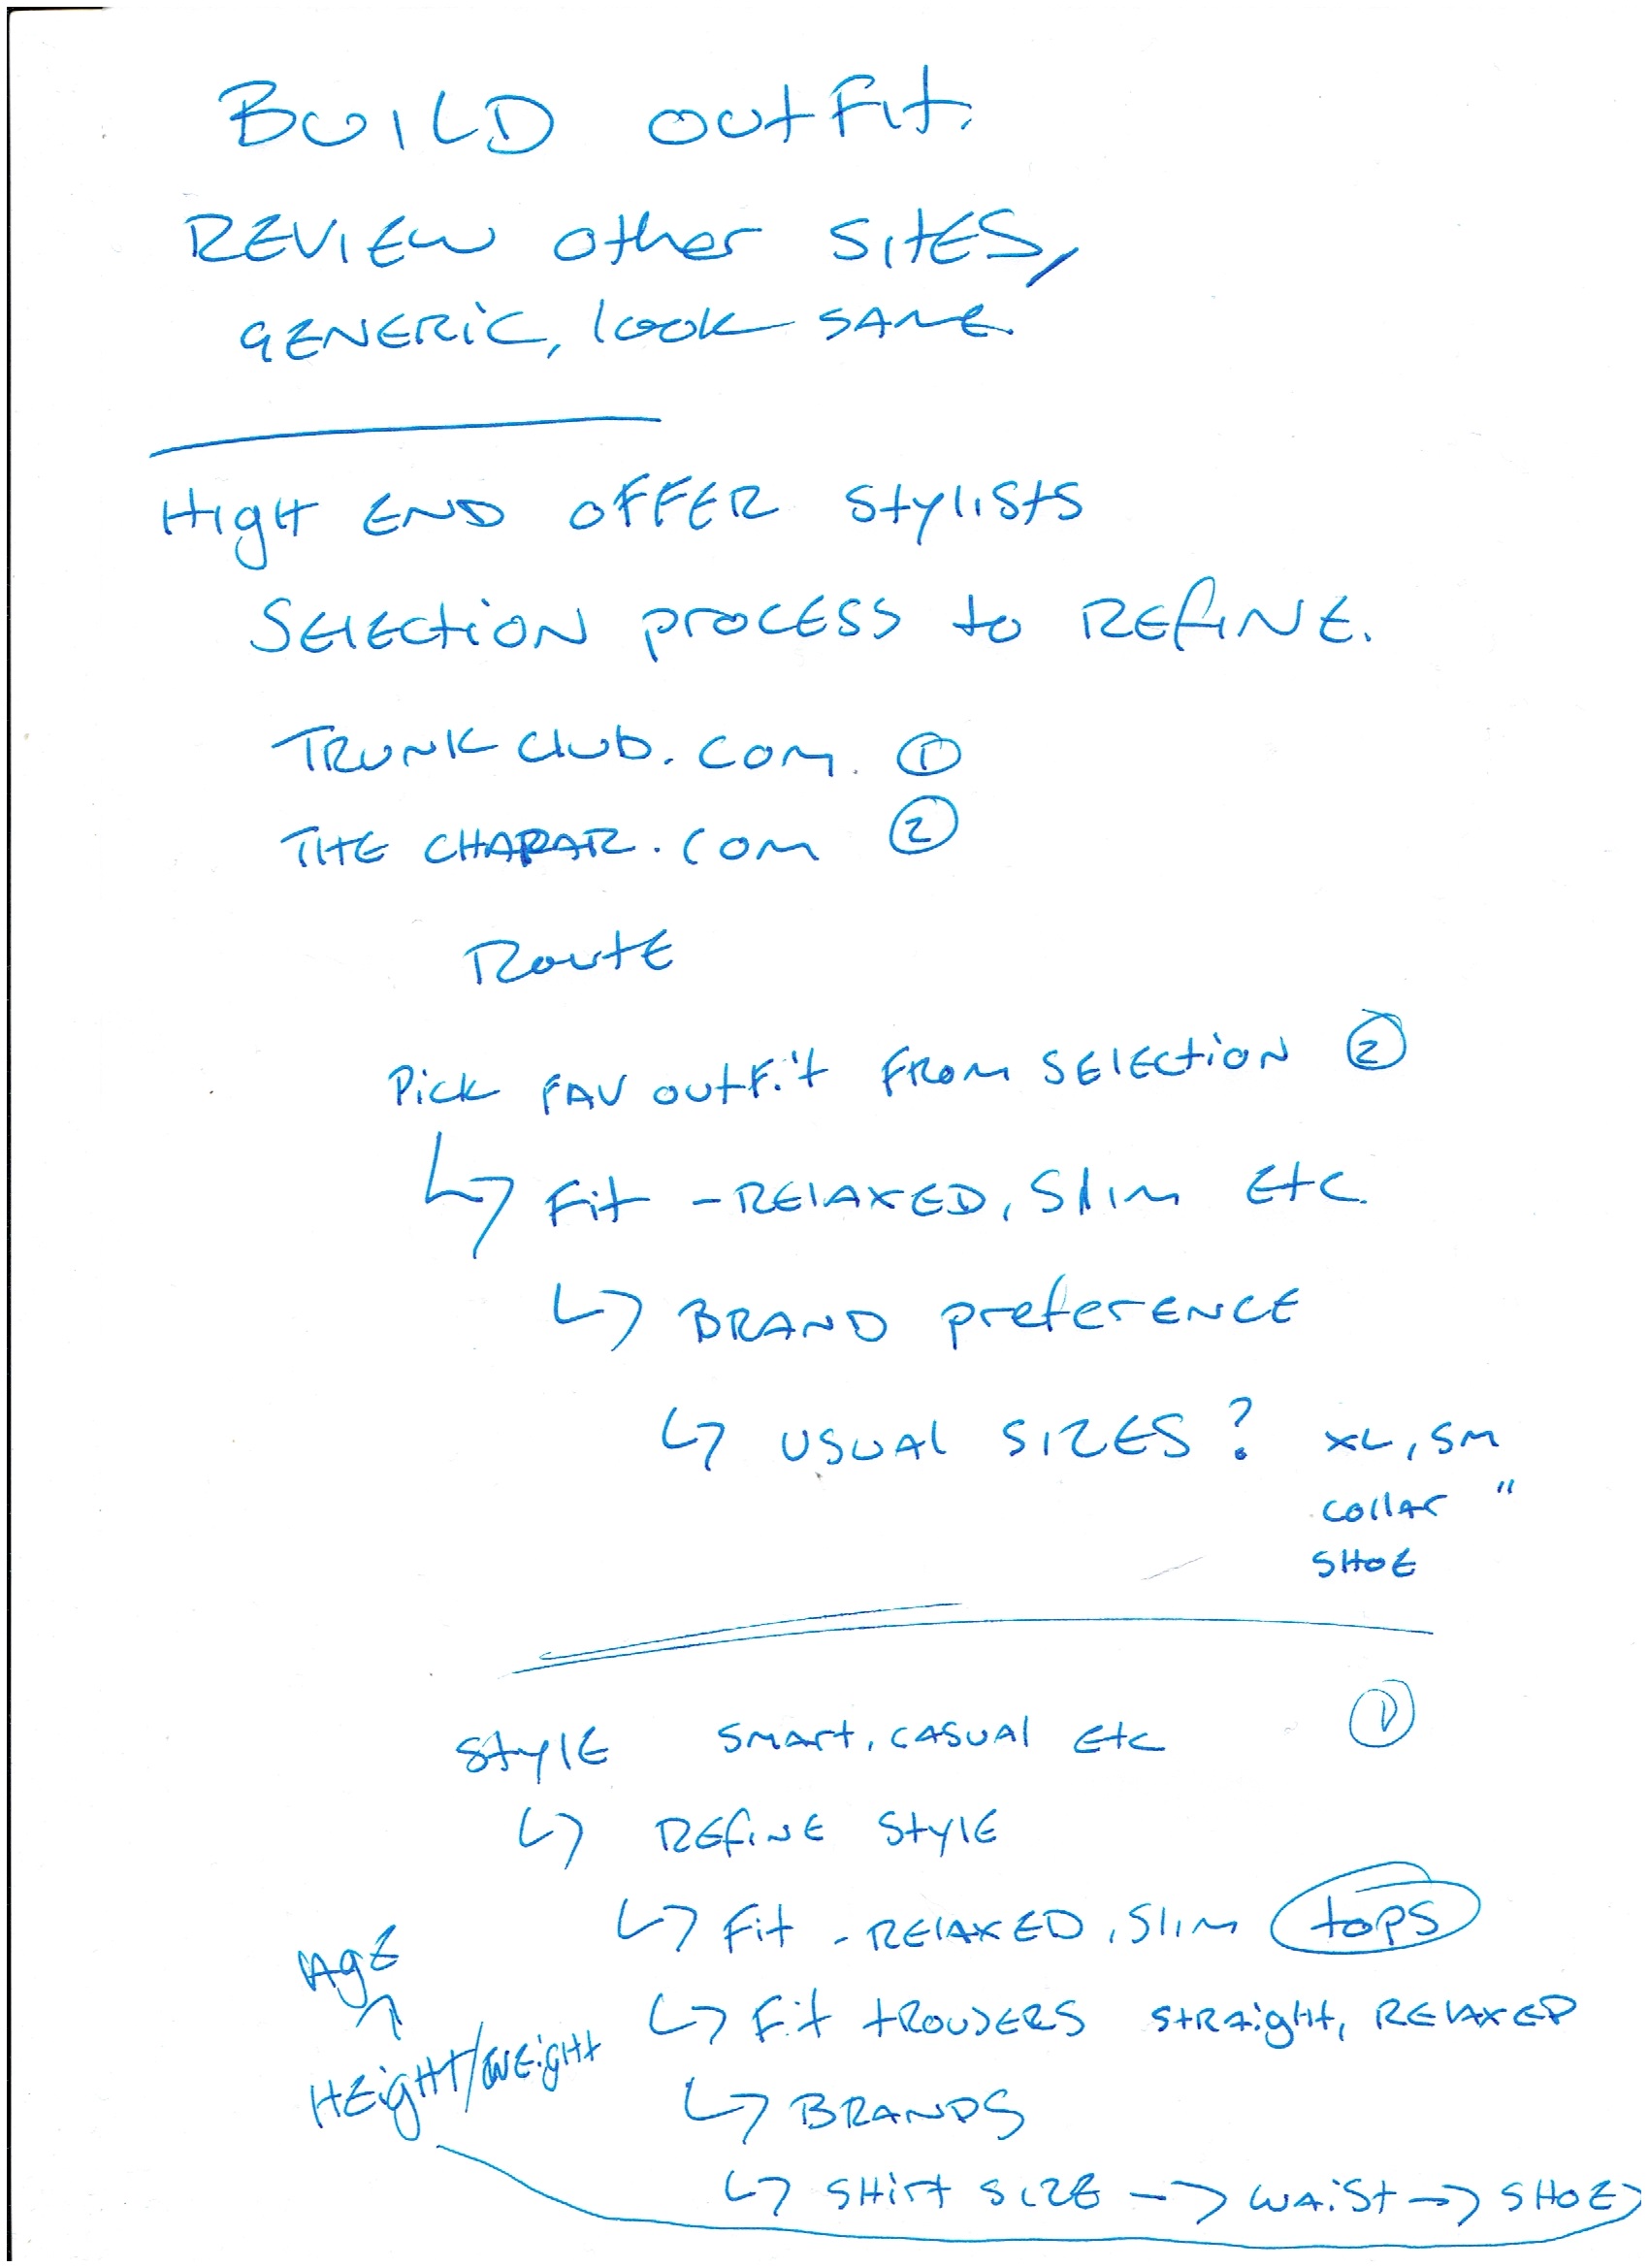 BUILD OUTFIT.
REVIEW other SITES,
GENERIC, look SAME
HIGH END OFFER StyliSts
SElECtiON PROCESS to REfINE.
TRUNK Club.com. ①
THE CHAPAR.com ②
RoutE
Pick FAV outFit FROM SElECtiON ②
↳ Fit - RElAXED, Slim Etc.
↳ BRAND preferENCE
↳ USUAl SIZES? XL, SM
collAr "
SHOE
StylE SMArt, CASUAl Etc ①
↳ REfiNE StylE
↳ Fit - RElAXED, Slim tops
↳ Fit tROUSERS StRAight, RElAXED
↳ BRANDS
↳ SHirt SIZE -> WAiSt -> SHOE
HEigHt/WEigHt
AgE